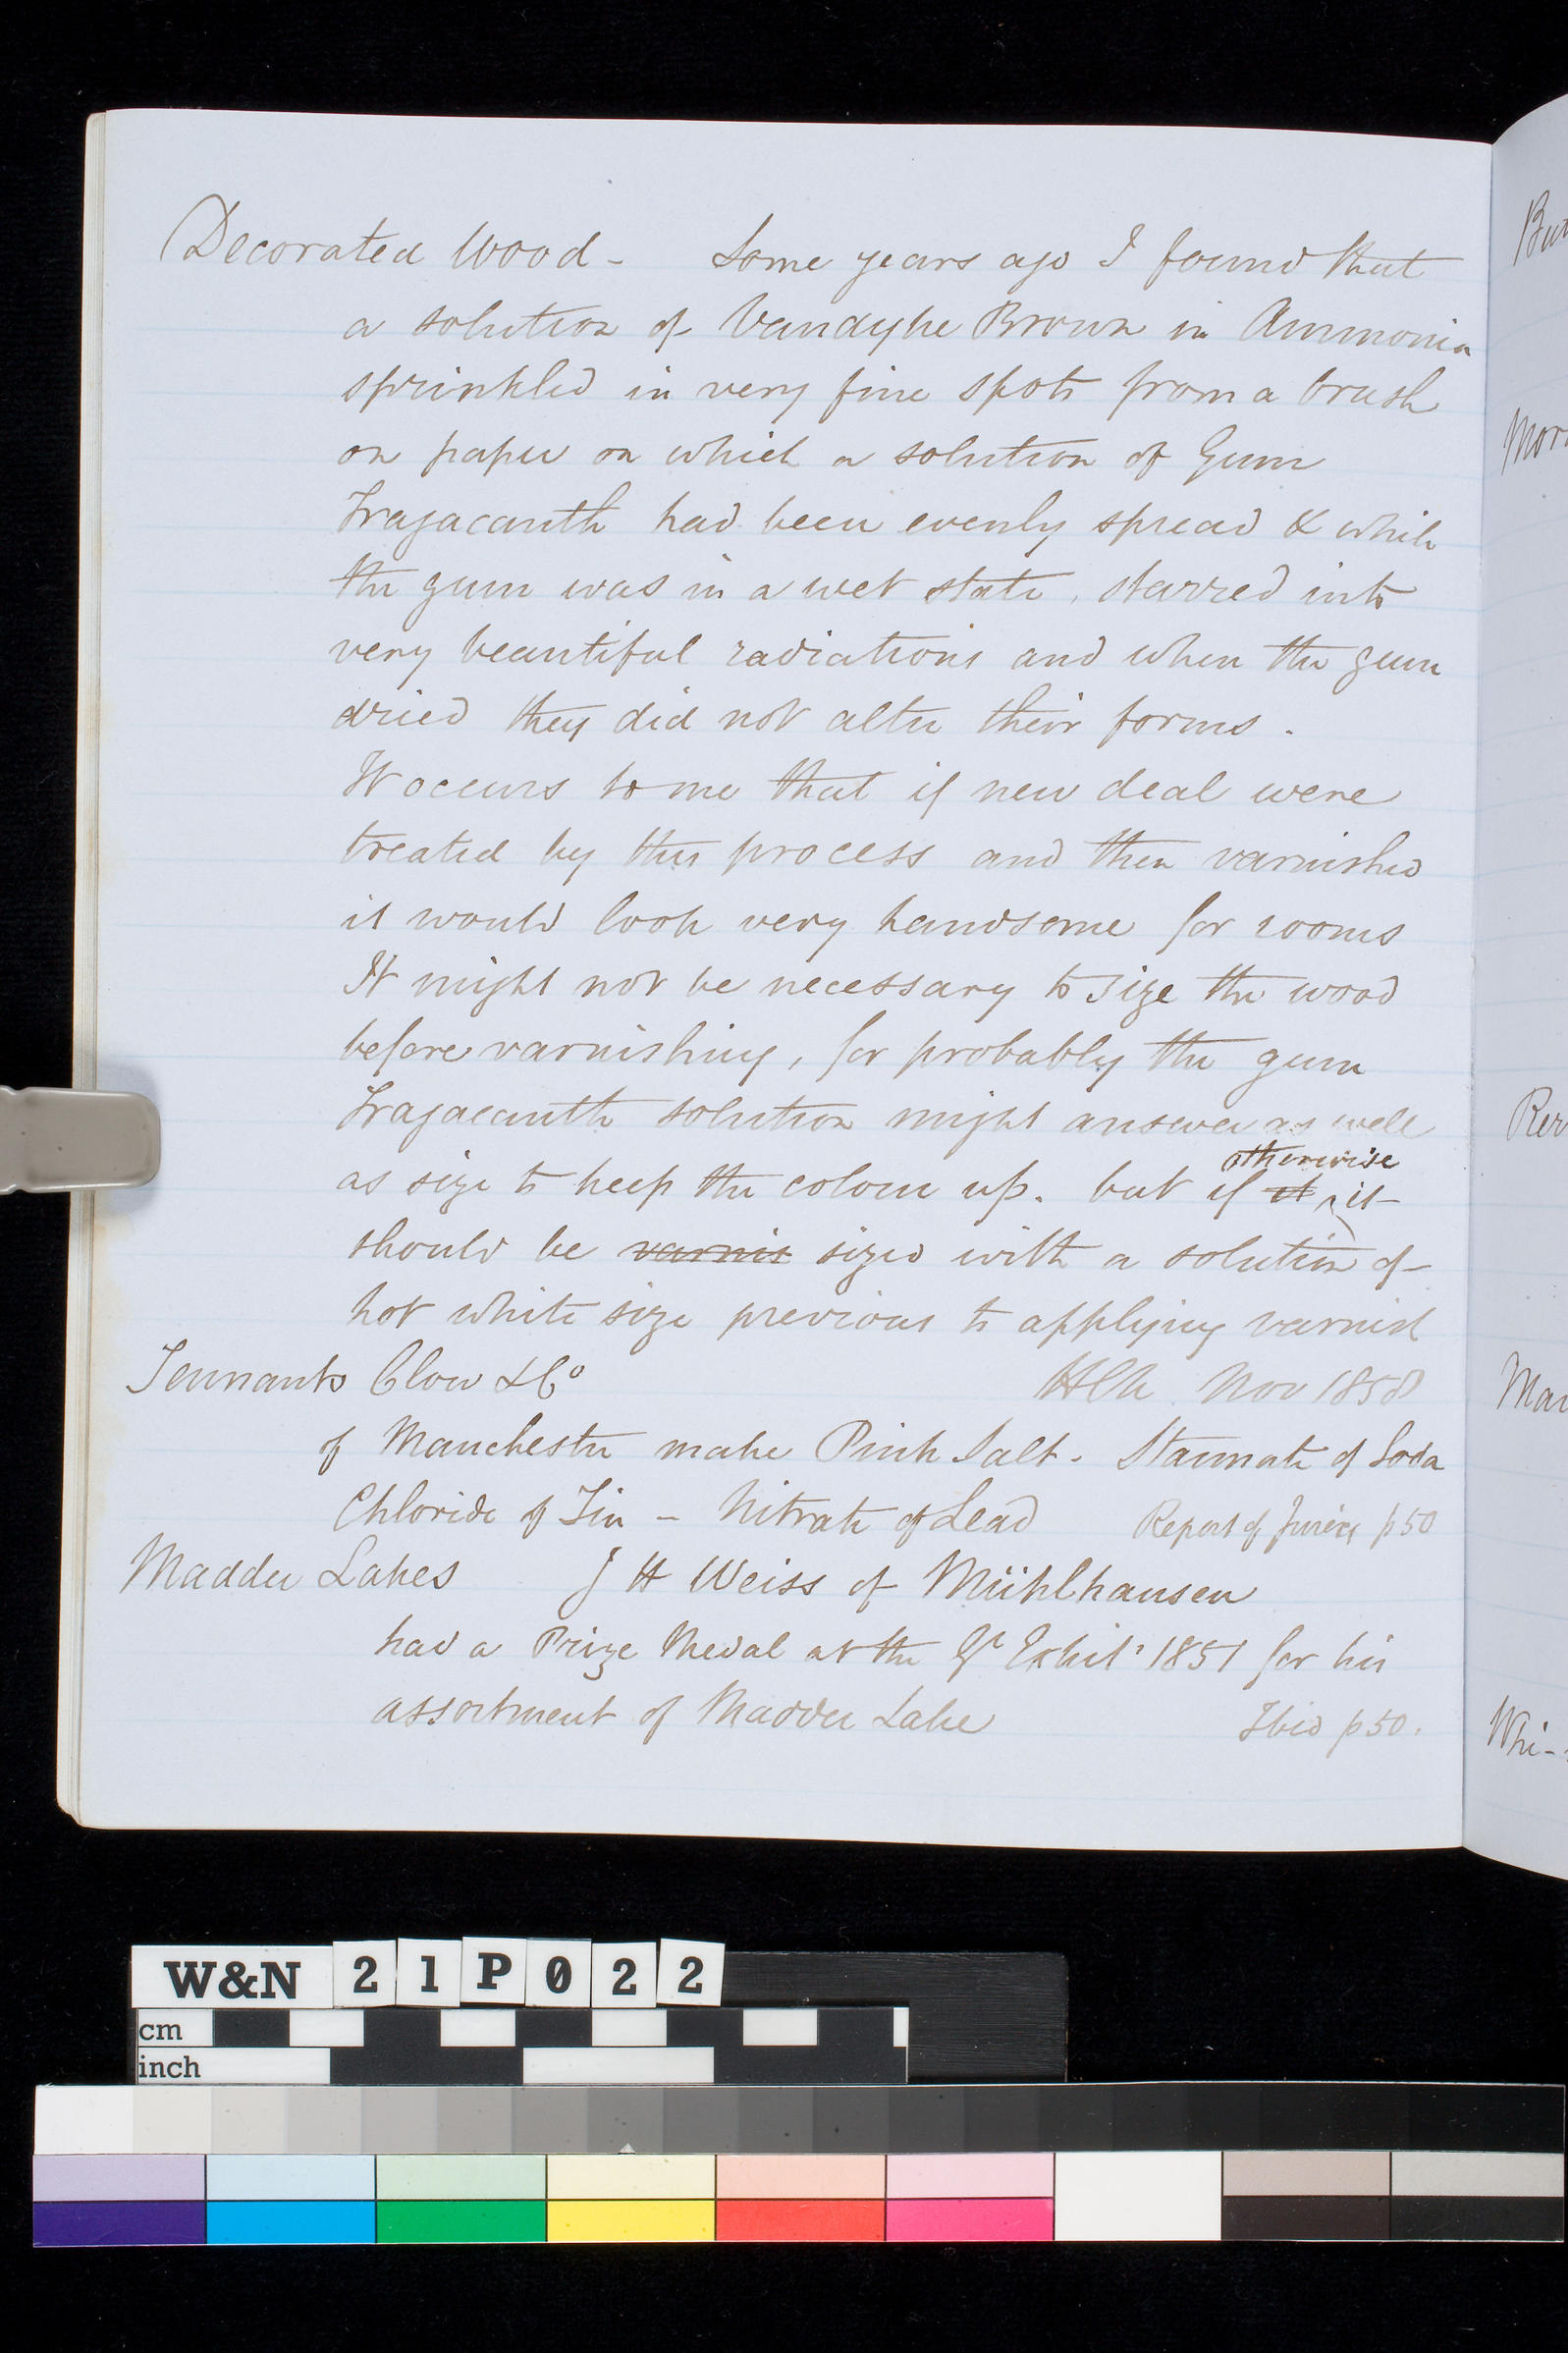 Decorated Wood - Some years ago I found that
a solution of Vandyke Brown in Ammonia
sprinkled in very fine spots from a brush
on paper on which a solution of Gum
Tragacanth had been evenly spread & while
the gum was in a wet state, starred into
very beautiful radiations and when the gum
dried they did not alter their forms.
It occurs to me that if new deal were
treated by this process and then varnished
it would look very handsome for rooms
It might not be necessary to size the wood
before varnishing, for probably the gum
Tragacanth solution might answer as well
otherwise
as size to keep the colour up. but if it it
should be varnis sized with a solution of
hot white size previous to applying varnish
Tennants Clow & Co
Nov 1858
of Manchester make Pink Salt. Stannate of Soda
Chloride of Tin - Nitrate of Lead Report of Juries p50
Madder Lakes J H Weiss of Mühlhausen
had a Prize Medal at the Gt Exhibn 1851 for his
assortment of Madder Lake Ibid p50.
Mar
Whi-
W&N 21P022
cm
inch